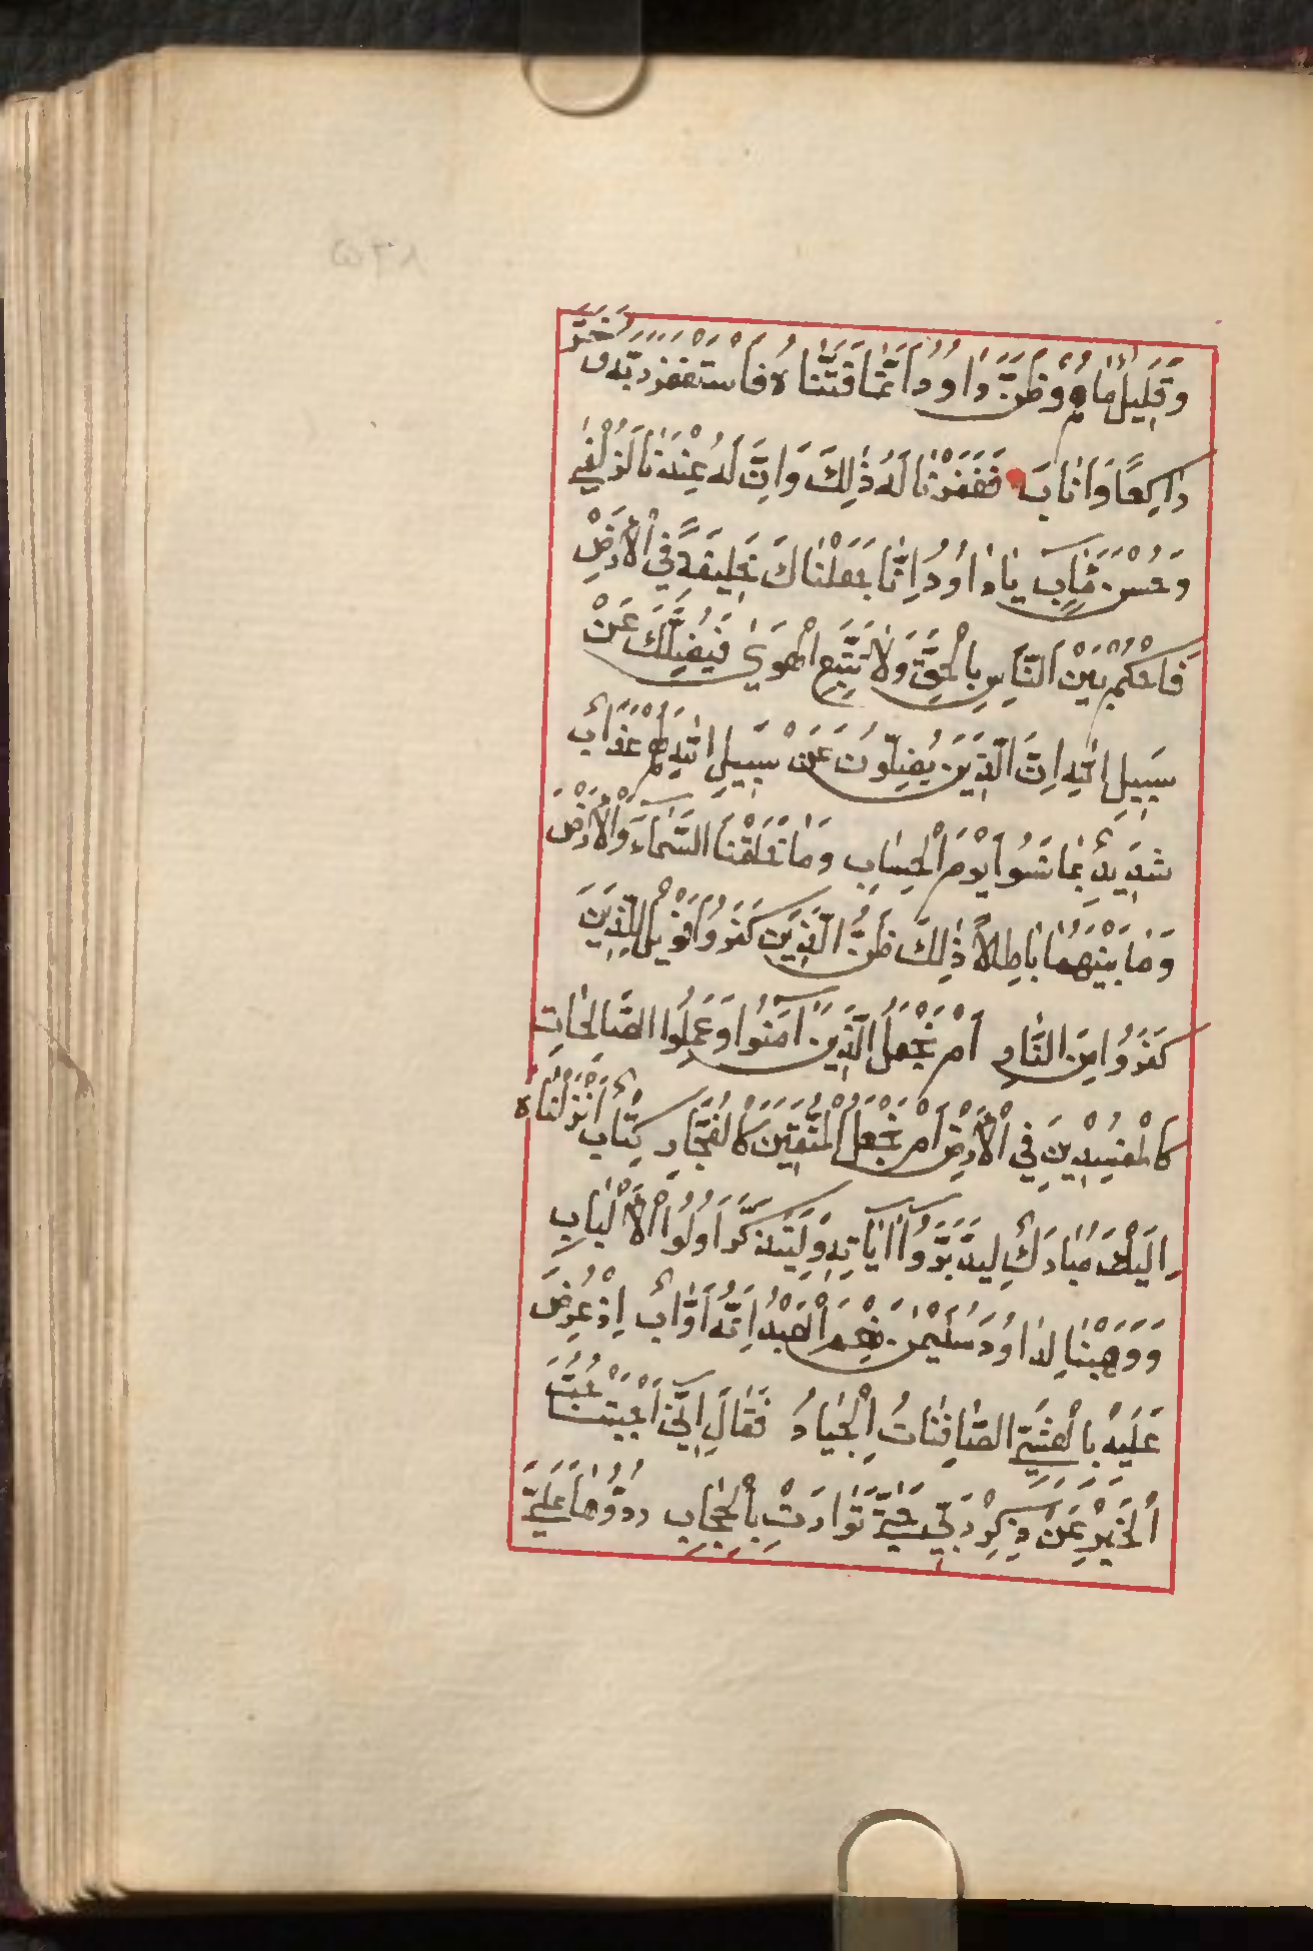 وَقَلِيلٌ مَا هُمْ وَظَنَّ دَاوُودُ اَنَّمَا فَتَنَّاهُ فَاسْتَغْفَرَ رَبَّهُ وَخَرَّ
رَاكِعًا وَاَنَابَ فَغَفَرْنَا لَهُ ذٰلِكَ وَاِنَّ لَهُ عِنْدَنَا لَزُلْفٰى
وَحُسْنَ مَآبٍ يَا دَاوُدُ اِنَّا جَعَلْنَاكَ خَلِيفَةً فِي الْاَرْضِ
فَاحْكُمْ بَيْنَ النَّاسِ بِالْحَقِّ وَلَا تَتَّبِعِ الْهَوٰى فَيُضِلَّكَ عَنْ
سَبِيلِ اللّٰهِ اِنَّ الَّذِينَ يَضِلُّونَ عَنْ سَبِيلِ اللّٰهِ لَهُمْ عَذَابٌ
شَدِيدٌ بِمَا نَسُوا يَوْمَ الْحِسَابِ وَمَا خَلَقْنَا السَّمَاءَ وَالْاَرْضَ
وَمَا بَيْنَهُمَا بَاطِلًا ذٰلِكَ ظَنُّ الَّذِينَ كَفَرُوا فَوَيْلٌ لِلَّذِينَ
كَفَرُوا مِنَ النَّارِ اَمْ نَجْعَلُ الَّذِينَ آمَنُوا وَعَمِلُوا الصَّالِحَاتِ
كَالْمُفْسِدِينَ فِي الْاَرْضِ اَمْ نَجْعَلُ الْمُتَّقِينَ كَالْفُجَّارِ كِتَابٌ اَنْزَلْنَاهُ
اِلَيْكَ مُبَارَكٌ لِيَدَّبَّرُوا آيَاتِهِ وَلِيَتَذَكَّرَ اُولُوا الْاَلْبَابِ
وَوَهَبْنَا لِدَاوُدَ سُلَيْمٰنَ نِعْمَ الْعَبْدُ اِنَّهُ اَوَّابٌ اِذْ عُرِضَ
عَلَيْهِ بِالْعَشِيِّ الصَّافِنَاتُ الْجِيَادُ فَقَالَ اِنِّي اَحْبَبْتُ حُبَّ
الْخَيْرِ عَنْ ذِكْرِ رَبِّي حَتّٰى تَوَارَتْ بِالْحِجَابِ رُدُّوهَا عَلَيَّ